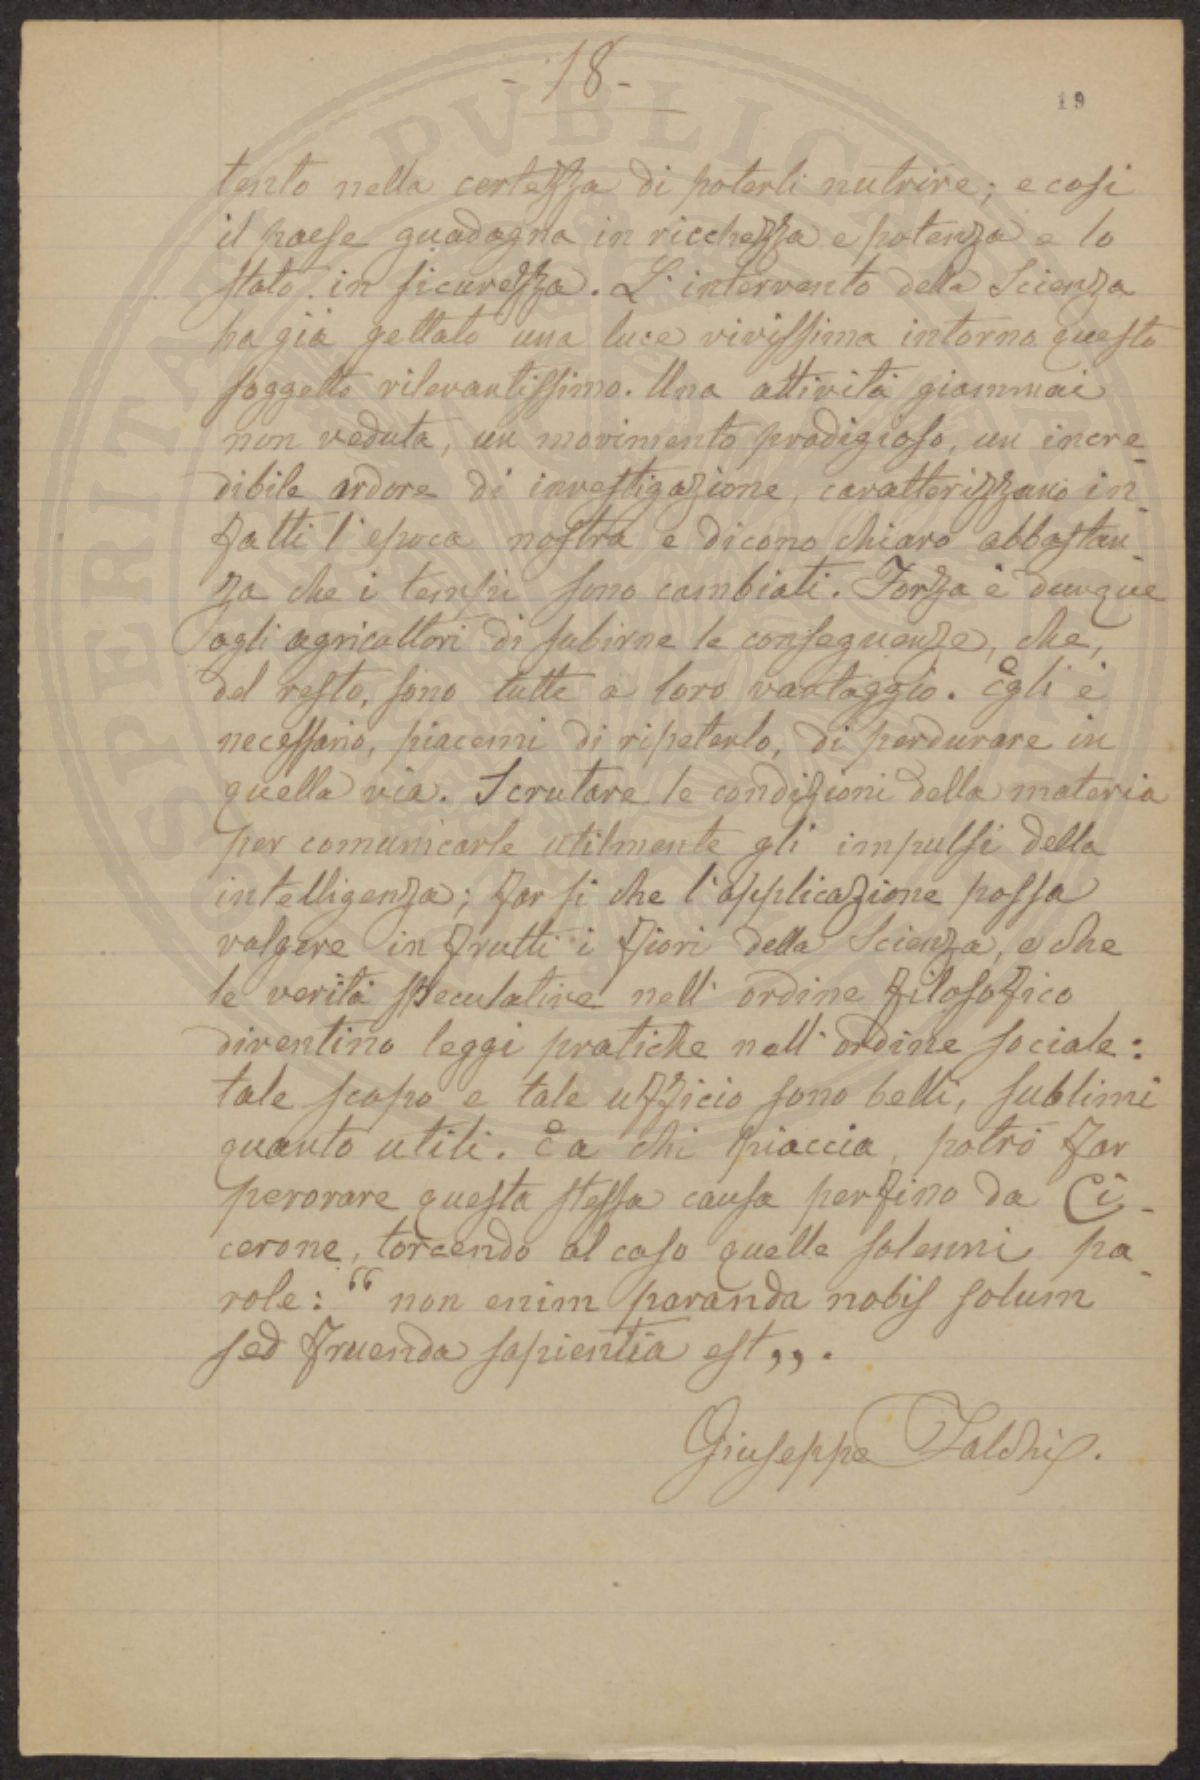 - 18 -
19
tento nella certezza di poterli nutrire; e cosi
il paese guadagna in ricchezza e potenza e lo
stato in sicurezza. L'intervento della Scienza
ha già gettato una luce vivissima intorno questo
soggetto rilevantissimo. Una attività giammai
non veduta, un movimento prodigioso, un incre-
dibile ardore di investigazione, caratterizzano in-
fatti l'epoca nostra e dicono chiaro abbastan-
za che i tempi sono cambiati. Forza è dunque
agli agricoltori di subirne le conseguenze, che,
del resto, sono tutte a loro vantaggio. Egli è
necessario, piacemi di ripeterlo, di perdurare in
quella via. Scrutare le condizioni della materia
per comunicarle utilmente gli impulsi della
intelligenza; far si che l'applicazione possa
volgere in frutti i fiori della Scienza, e che
le verità speculative nell'ordine filosofico
diventino leggi pratiche nell'ordine sociale:
tale scopo e tale uffizio sono belli, sublimi
quanto utili. E a chi piaccia, potrò far
perorare questa stessa causa perfino da Ci-
cerone, torcendo al caso quelle solenni pa-
role: “ non enim paranda nobis solum
sed fruenda sapientia est „.
Giuseppe Falchi.
PVBLICA